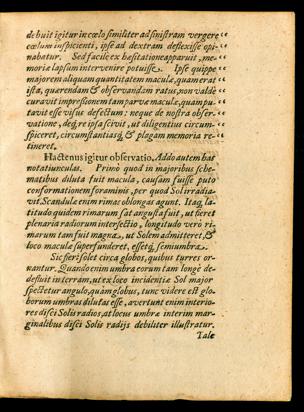 debuit igitur in cœlo similiter ad sinistram vergere “
cœlum inspicienti, ipse ad dextram deflexisse opi- “
nabatur. Sed facile ex hæsitatione apparuit, me- “
moriæ lapsum intervenire potuisse. Ipse quippe “
majorem aliquam quantitatem maculæ, quam erat “
ista, quærendam & observandam ratus, non valdè “
curavit impressionem tam parvæ maculæ, quam pu- “
tavit esse visus defectum: neque de nostra obser- “
vatione, deq; re ipsa scivit, ut diligentius circum- “
spiceret, circumstantiasq; & plagam memoria re “
tineret.
Hactenus igitur observatio. Addo autem has
notatiunculas. Primò quod in majoribus sche-
matibus diluta fuit macula, causam fuisse puto
conformationem foraminis, per quod Sol irradia-
vit. Scandulæ enim rimas oblongas agunt. Itaq; la-
titudo quidem rimarum sat angusta fuit, ut fieret
plenaria radiorum intersectio, longitudo verò ri-
marum tam fuit magna, ut Solem admitteret, &
loco maculæ superfunderet, essetq; semiumbra.
Sic fieri solet circa globos, quibus turres or-
nantur. Quando enim umbra eorum tam longè de-
desluit in terram, ut ex loco incidentiæ Sol major
spectetur angulo, quàm globus, tunc videre est glo-
borum umbras dilutas esse, avertunt enim interio-
res disci Solis radios, at locus umbræ interim mar-
ginalibus disci Solis radijs debiliter illustratur.
Tale